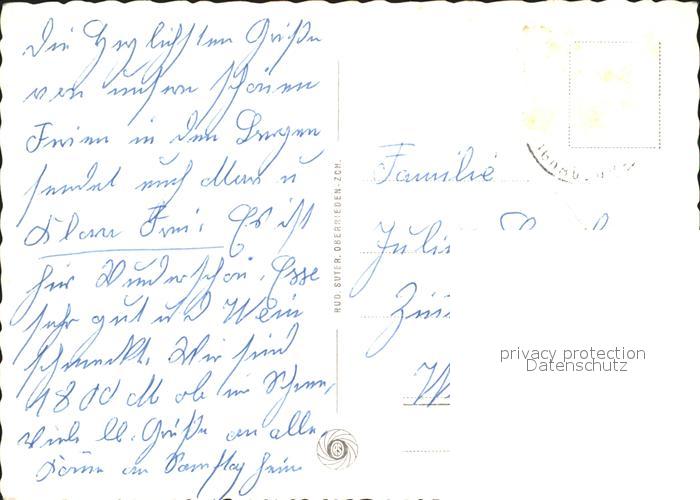 Die Herzlichsten Grüße
von unsern schönen
Ferien in den Bergen
sendet euch Max u
Klara Frei. Es ist
hir Wunderschön. Esse
sehr gut und Wein
schmeckt. Wir sind
1800 M ob im Schnee,
Viele lb. Grüße an alle,
am Samstag heim
RUD. SUTER, OBERRIEDEN-ZCH.
Familie
privacy protection
Datenschutz